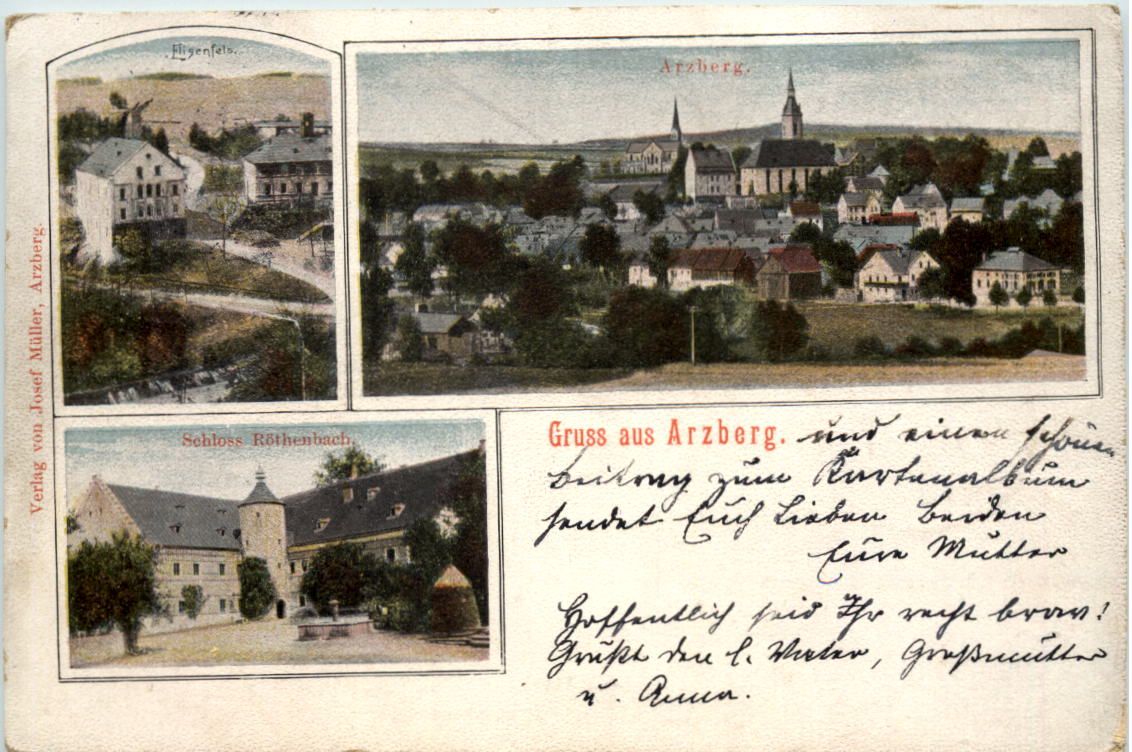 Elisenfels.
Arzberg.
Verlag von Josef Müller, Arzberg.
Schloss Röthenbach.
Gruss aus Arzberg. und einen schönen
Beitrag zum Kartenalbum
sendet Euch Lieben Beiden
Eure Mutter
Hoffentlich seid Ihr recht brav!
Grüßt den l. Vater, Großmutter
u. Anna.